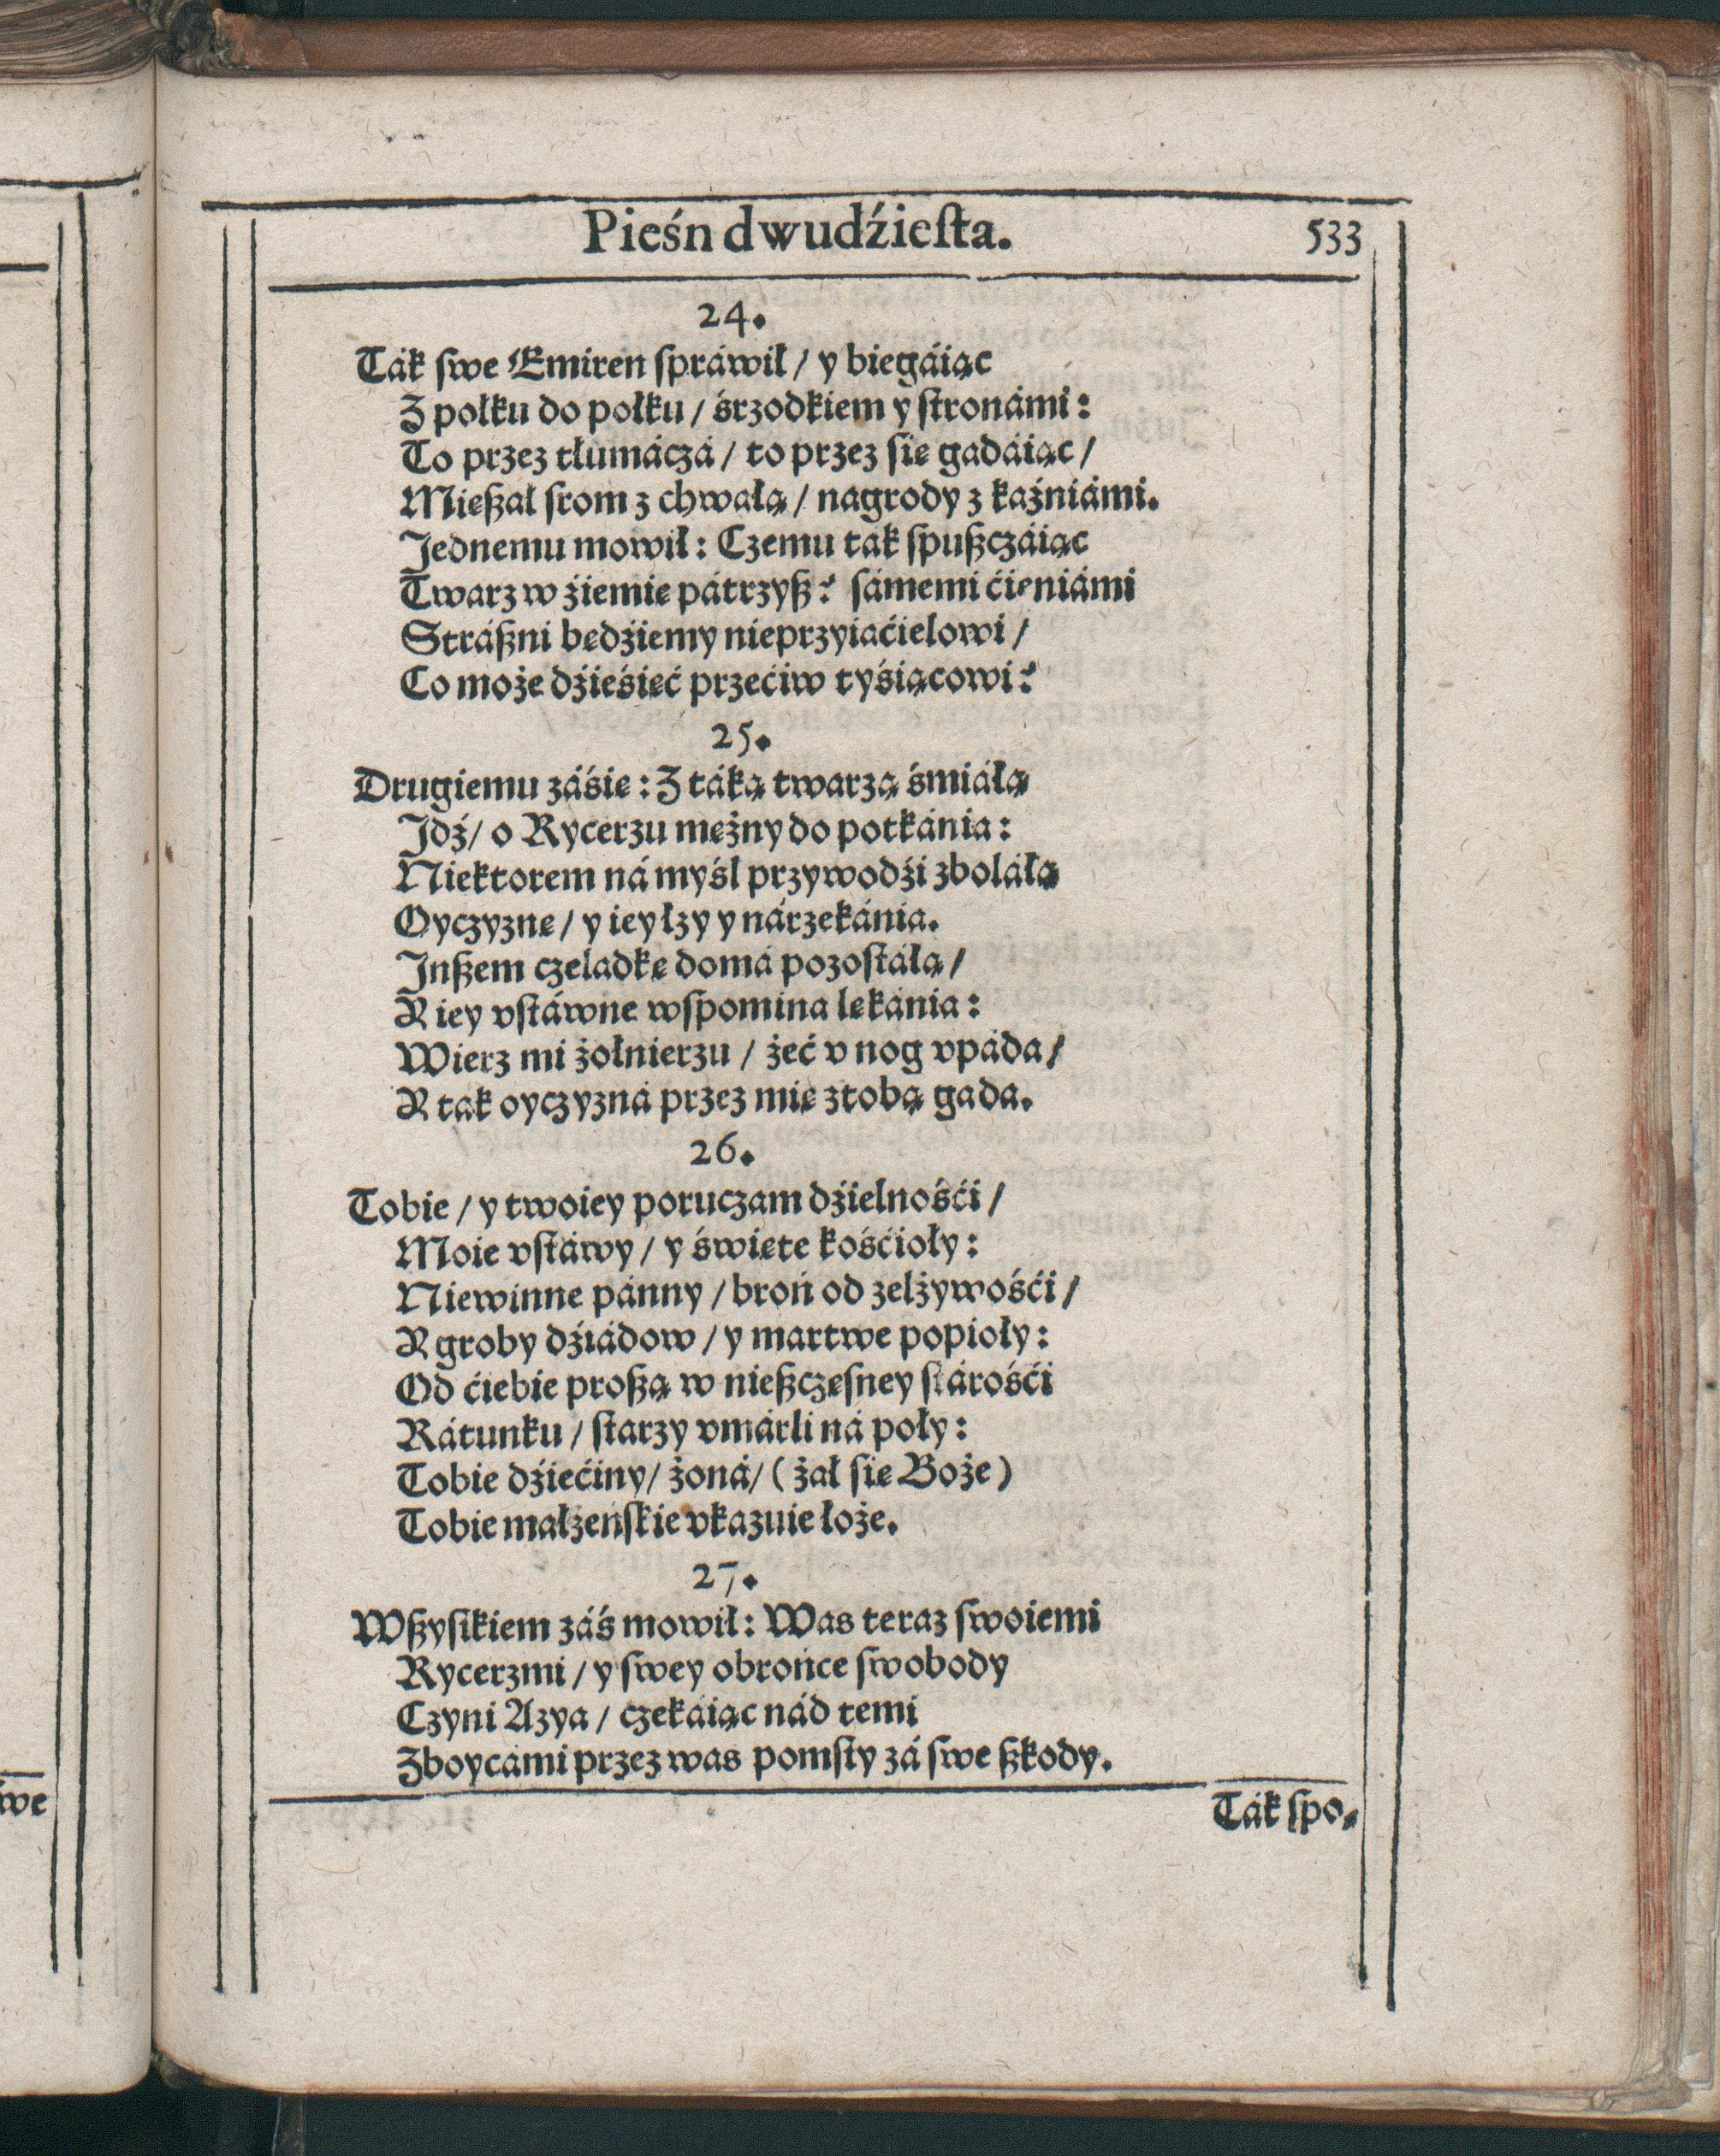 Pieśn dwudźieſta.
533
24.
Ták ſwe Emiren ſpráwił / y biegáiąc
Z połku do połku / śrzodkiem y ſtronámi:
To przez tłumáczá / to przez ſię gadáiąc /
Mießał ſrom z chwałą / nagrody z kaźniámi.
Jednemu mowił: Czemu ták ſpußczáiąc
Twarz w źiemię pátrzyß? ſámemi ćieniámi
Stráßni będźiemy nieprzyiaćielowi /
Co może dźieśięć przećiw tyśiącowi?
25.
Drugiemu záśię: Z táką twarzą śmiáłą
Jdź / o Rycerzu mężny do potkánia:
Niektorem ná myśl przywodźi zboláłą
Oyczyznę / y iey łzy y nárzekánia.
Jnßem czeladkę domá pozoſtáłą /
Y iey vſtáwne wſpomina lękánia:
Wierz mi żołnierzu / żeć v nog vpáda /
Y tak oyczyzná przez mię ztobą gada.
26.
Tobie / y twoiey poruczam dźielnośći /
Moie vſtáwy / y święte kośćioły:
Niewinne pánny / broń od zelżywośći /
Y groby dźiádow / y martwe popioły:
Od ćiebie proßą w nießczęſney ſtárośći
Rátunku / ſtarzy vmárli ná poły:
Tobie dźiećiny / żoná / ( żal ſię Boże )
Tobie małżeńſkie vkazuie łoże.
27.
Wßyſtkiem záś mowił: Was teraz ſwoiemi
Rycerzmi / y ſwey obrońce ſwobody
Czyni Azya / czekáiąc nád temi
Zboycámi przez was pomſty zá ſwe ßkody.
Ták ſpo-
ſwe